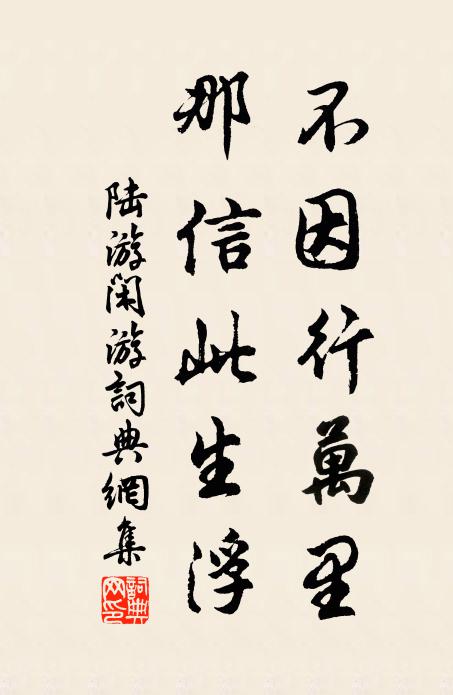 不因行萬里
那信此生浮
陸游閑游詞典網集
詞典網印